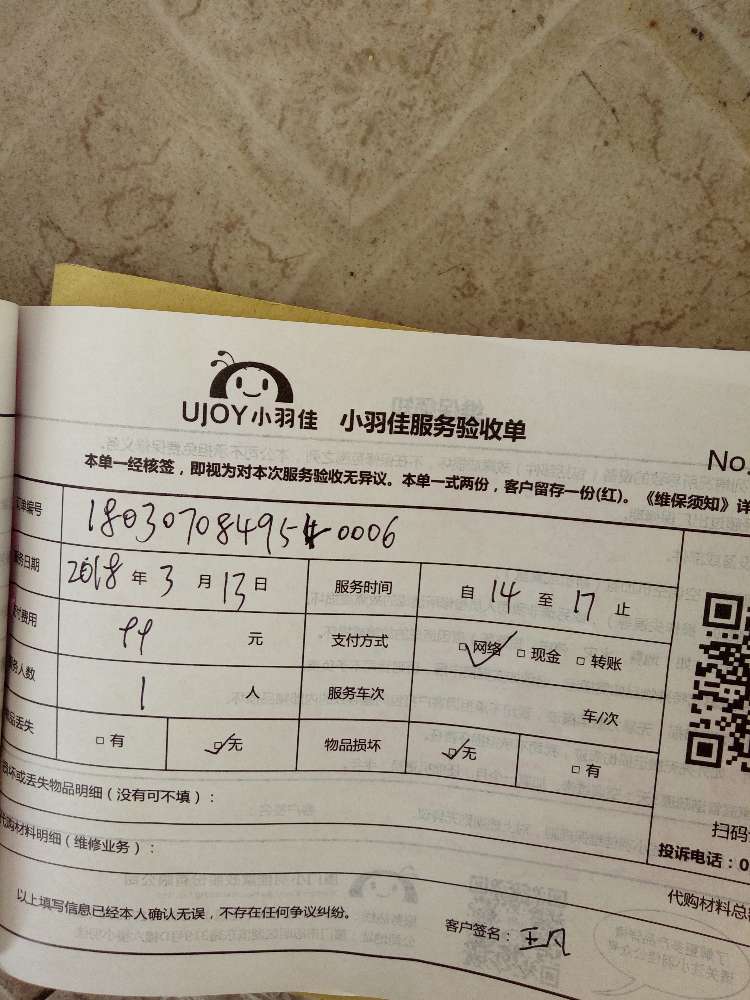 UJOY小羽佳 小羽佳服务验收单
No.
本单一经核签，即视为对本次服务验收无异议。本单一式两份，客户留存一份(红)。《维保须知》详
订单编号 180307084954 0006
服务日期 2018 年 3 月 13 日 服务时间 自 14 至 17 止
付费用 99 元 支付方式 网络 现金 转账
务人数 1 人 服务车次 车/次
物品丢失 有 无 物品损坏 无 有
损坏或丢失物品明细（没有可不填）：
代购材料明细（维修业务）：
扫码
投诉电话：0
代购材料总
以上填写信息已经本人确认无误，不存在任何争议纠纷。 客户签名：王凡